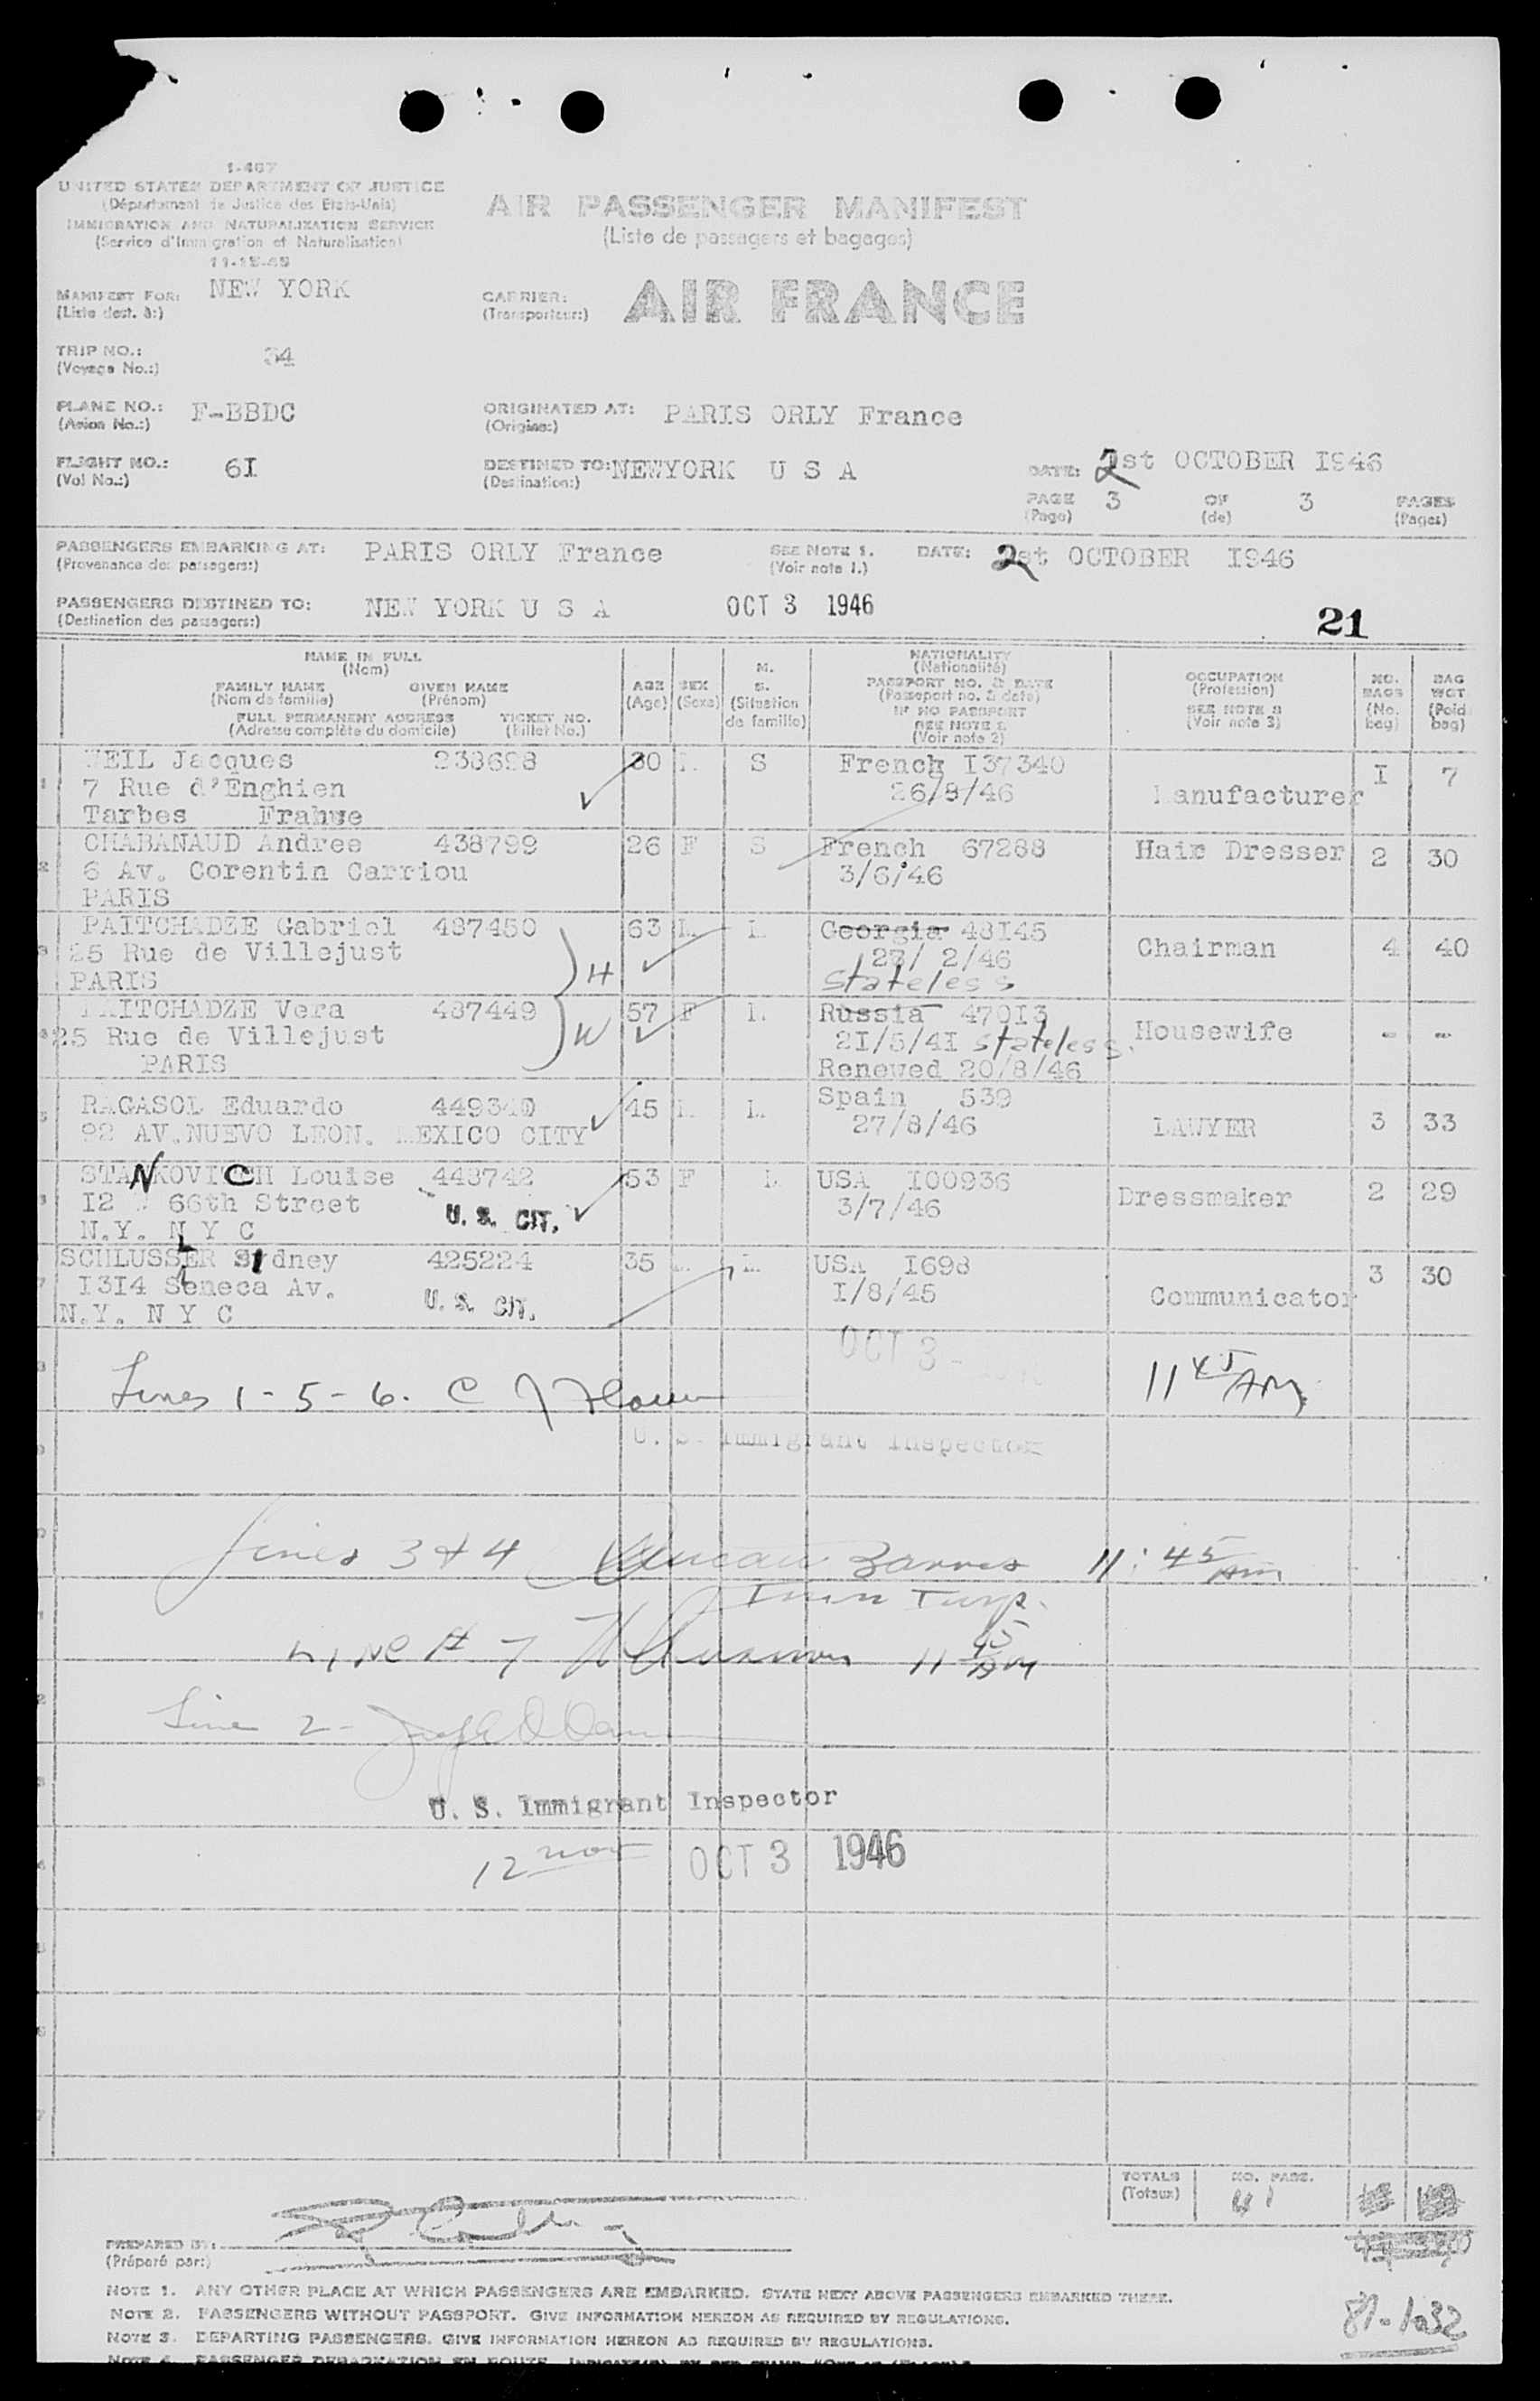 1-467
UNITED STATES DEPARTMENT OF JUSTICE
(Département de Justice des Etats-Unis)
IMMIGRATION AND NATURALIZATION SERVICE
(Service d'Immigration et Naturalisation)
11-15-45
AIR PASSENGER MANIFEST
(Liste de passagers et bagages)
MANIFEST FOR: NEW YORK
(Liste dest. à:)
CARRIER: AIR FRANCE
(Transporteur:)
TRIP NO.: 34
(Voyage No.:)
PLANE NO.: F-BBDC
(Avion No.:)
ORIGINATED AT: PARIS ORLY France
(Origine:)
FLIGHT NO.: 6I
(Vol No.:)
DESTINED TO: NEWYORK U S A
(Destination:)
DATE: 2st OCTOBER I946
PAGE 3 OF 3 PAGES
(Page) (de) (Pages)
PASSENGERS EMBARKING AT: PARIS ORLY France
(Provenance des passagers:)
SEE NOTE 1. DATE: 2st OCTOBER I946
(Voir note 1.)
PASSENGERS DESTINED TO: NEW YORK U S A OCT 3 1946
(Destination des passagers:)
21
NAME IN FULL
(Nom)
FAMILY NAME GIVEN NAME
(Nom de famille) (Prénom)
FULL PERMANENT ADDRESS TICKET NO.
(Adresse complète du domicile) (Billet No.)
AGE
(Age)
SEX
(Sexe)
M.
S.
(Situation
de famille)
NATIONALITY
(Nationalité)
PASSPORT NO. & DATE
(Passeport no. & date)
IF NO PASSPORT
SEE NOTE 2
(Voir note 2)
OCCUPATION
(Profession)
SEE NOTE 3
(Voir note 3)
NO. BAGS
(No. bag)
BAG WGT
(Poid bag)
1 WEIL Jacques 238698 30 M S French I37340 I 7
7 Rue d'Enghien 26/8/46 Manufacturer
Tarbes France
2 CHABANAUD Andree 438799 26 F S French 67288 Hair Dresser 2 30
6 Av. Corentin Carriou 3/6/46
PARIS
3 PAITCHADZE Gabriel 487450 63 M M Georgia 48I45 Chairman 4 40
25 Rue de Villejust H 28/ 2/46
PARIS stateless
4 PAITCHADZE Vera 487449 57 F M Russia 470I3 Housewife - -
25 Rue de Villejust W 2I/5/4I stateless.
PARIS Renewed 20/8/46
5 RAGASOL Eduardo 449340 45 M M Spain 539 LAWYER 3 33
92 AV.NUEVO LEON. MEXICO CITY 27/8/46
6 STANKOVICH Louise 448742 53 F M USA I00936 Dressmaker 2 29
I2 66th Street U. S. CIT. 3/7/46
N.Y. N Y C
7 SCHLUSSLER Sidney 425224 35 M M USA I698 3 30
I3I4 Seneca Av. U. S. CIT. I/8/45 Communicator
N.Y. N Y C
OCT 3
Lines 1-5-6. 11 45 AM
U. S. Immigrant Inspector
Lines 3 & 4 Duncan Barnes 11:45 AM
Imm Insp.
Line # 7 11 45 AM
Line 2 -
U. S. Immigrant Inspector
12 noon OCT 3 1946
TOTALS NO. PASS.
(Totaux) 41
PREPARED BY:
(Préparé par:)
NOTE 1. ANY OTHER PLACE AT WHICH PASSENGERS ARE EMBARKED. STATE NEXT ABOVE PASSENGERS EMBARKED THERE.
NOTE 2. PASSENGERS WITHOUT PASSPORT. GIVE INFORMATION HEREON AS REQUIRED BY REGULATIONS.
NOTE 3. DEPARTING PASSENGERS. GIVE INFORMATION HEREON AS REQUIRED BY REGULATIONS.
81-1032